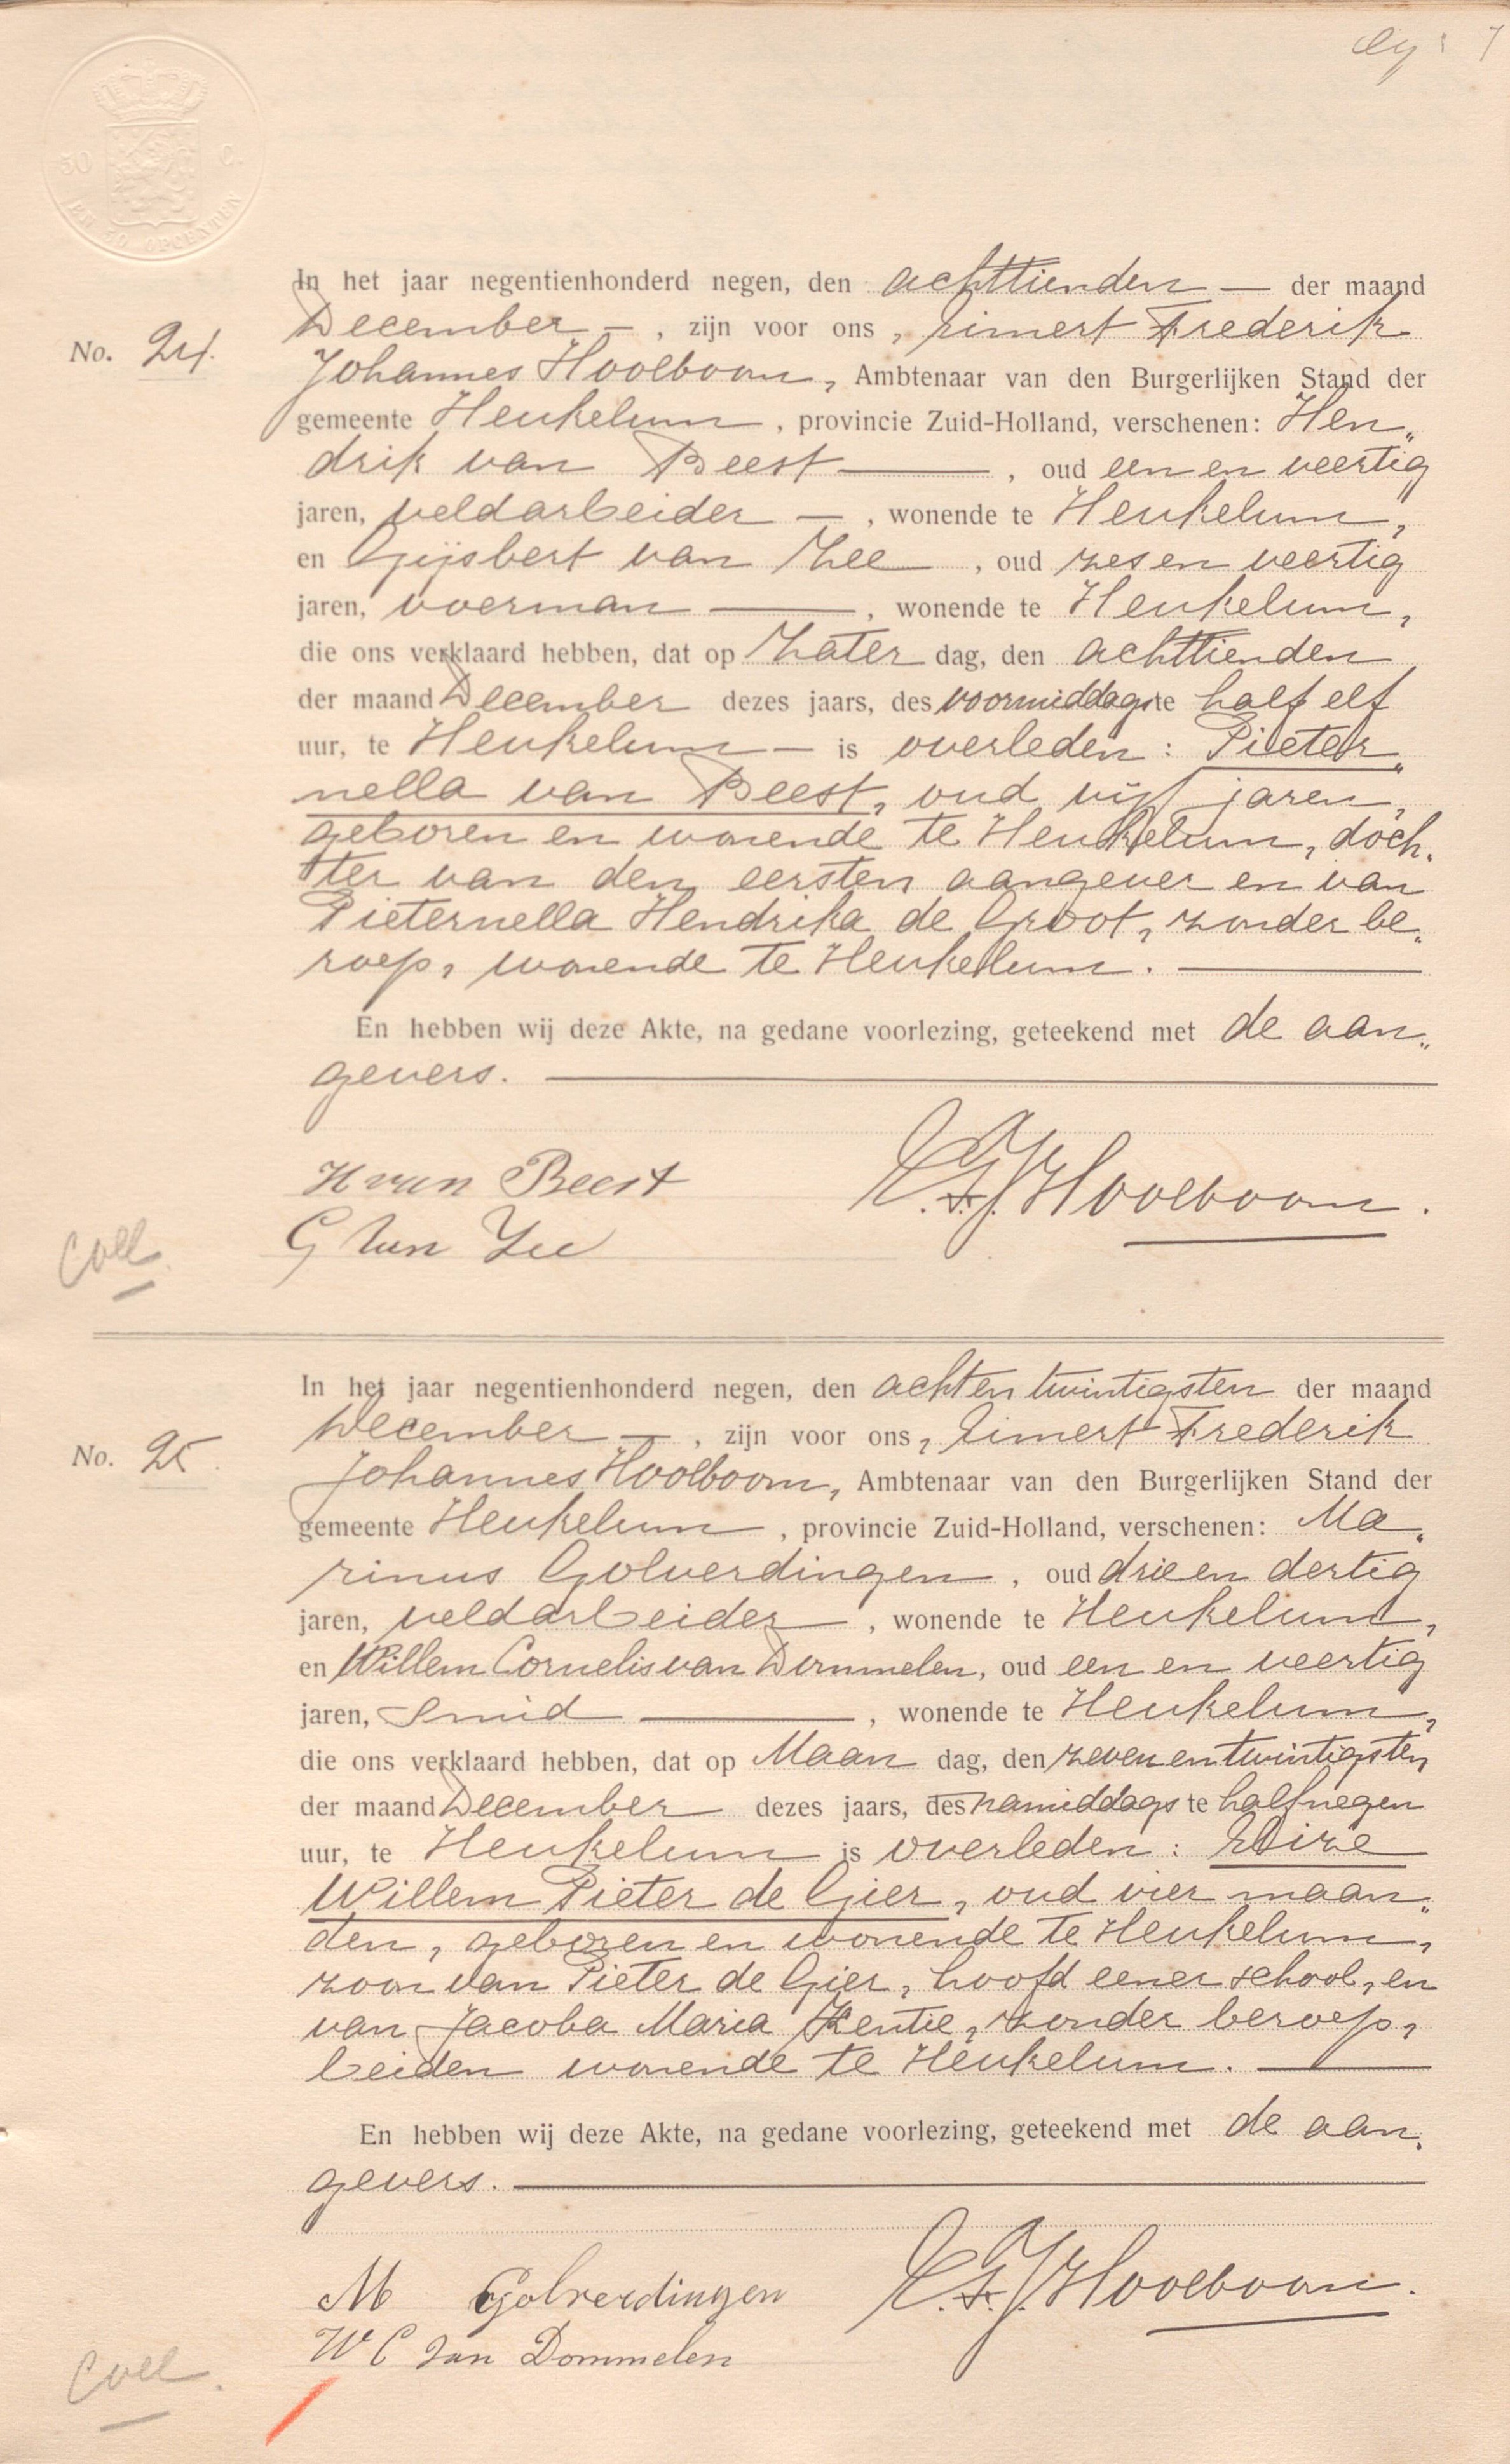 50 C.
EN 50 OPCENTEN
In het jaar negentienhonderd negen, den achttienden — der maand
December —, zijn voor ons, Eimert Frederik
No. 24.
Johannes Hoolboom, Ambtenaar van den Burgerlijken Stand der
gemeente Heukelum, provincie Zuid-Holland, verschenen: Hen„
drik van Beest —, oud een en veertig
jaren, veldarbeider —, wonende te Heukelum,
en Gijsbert van Zee, oud zes en veertig
jaren, voerman —, wonende te Heukelum,
die ons verklaard hebben, dat op Zater dag, den achttienden
der maand December dezes jaars, des voormiddags te half elf
uur, te Heukelum — is overleden: Pieter„
nella van Beest, oud vijf jaren,
geboren en wonende te Heukelum, doch„
ter van den eersten aangever en van
Pieternella Hendrika de Groot, zonder be„
roep, wonende te Heukelum. —
En hebben wij deze Akte, na gedane voorlezing, geteekend met de aan„
gevers. —
H van Beest
E.F.J. Hoolboom.
G van Zee
Coll.
In het jaar negentienhonderd negen, den acht en twintigsten der maand
December —, zijn voor ons, Eimert Frederik
No. 25.
Johannes Hoolboom, Ambtenaar van den Burgerlijken Stand der
gemeente Heukelum, provincie Zuid-Holland, verschenen: Ma„
rinus Golverdingen, oud drie en dertig
jaren, veldarbeider, wonende te Heukelum,
en Willem Cornelis van Dommelen, oud een en veertig
jaren, smid —, wonende te Heukelum,
die ons verklaard hebben, dat op Maan dag, den zeven en twintigsten
der maand December dezes jaars, des namiddags te half negen
uur, te Heukelum is overleden:
Willem Pieter de Gier, oud vier maan„
den, geboren en wonende te Heukelum,
zoon van Pieter de Gier, hoofd eener school, en
van Jacoba Maria Kentie, zonder beroep,
beiden wonende te Heukelum. —
En hebben wij deze Akte, na gedane voorlezing, geteekend met de aan„
gevers. —
M Golverdingen
E.F.J. Hoolboom.
W C van Dommelen
Coll.